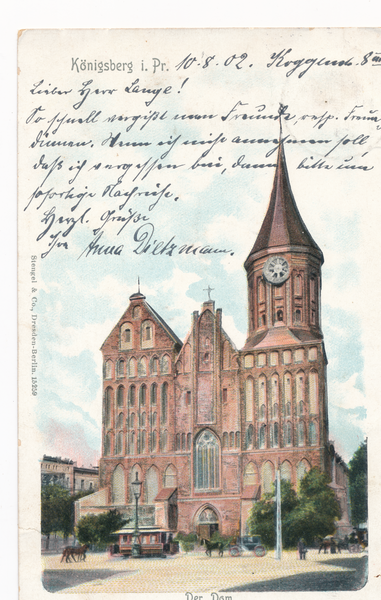 Königsberg i. Pr. 10.8.02. 8
Lieber Herr Lange!
So schnell vergißt man Freunde, resp. Freun
dinnen. Wenn ich nicht annehmen soll
daß ich vergessen bin, dann bitte um
sofortige Nachricht.
Herzl. Grüße
Ihre Anna Dietzmann.
Stengel & Co., Dresden-Berlin. 15359
Der Dom